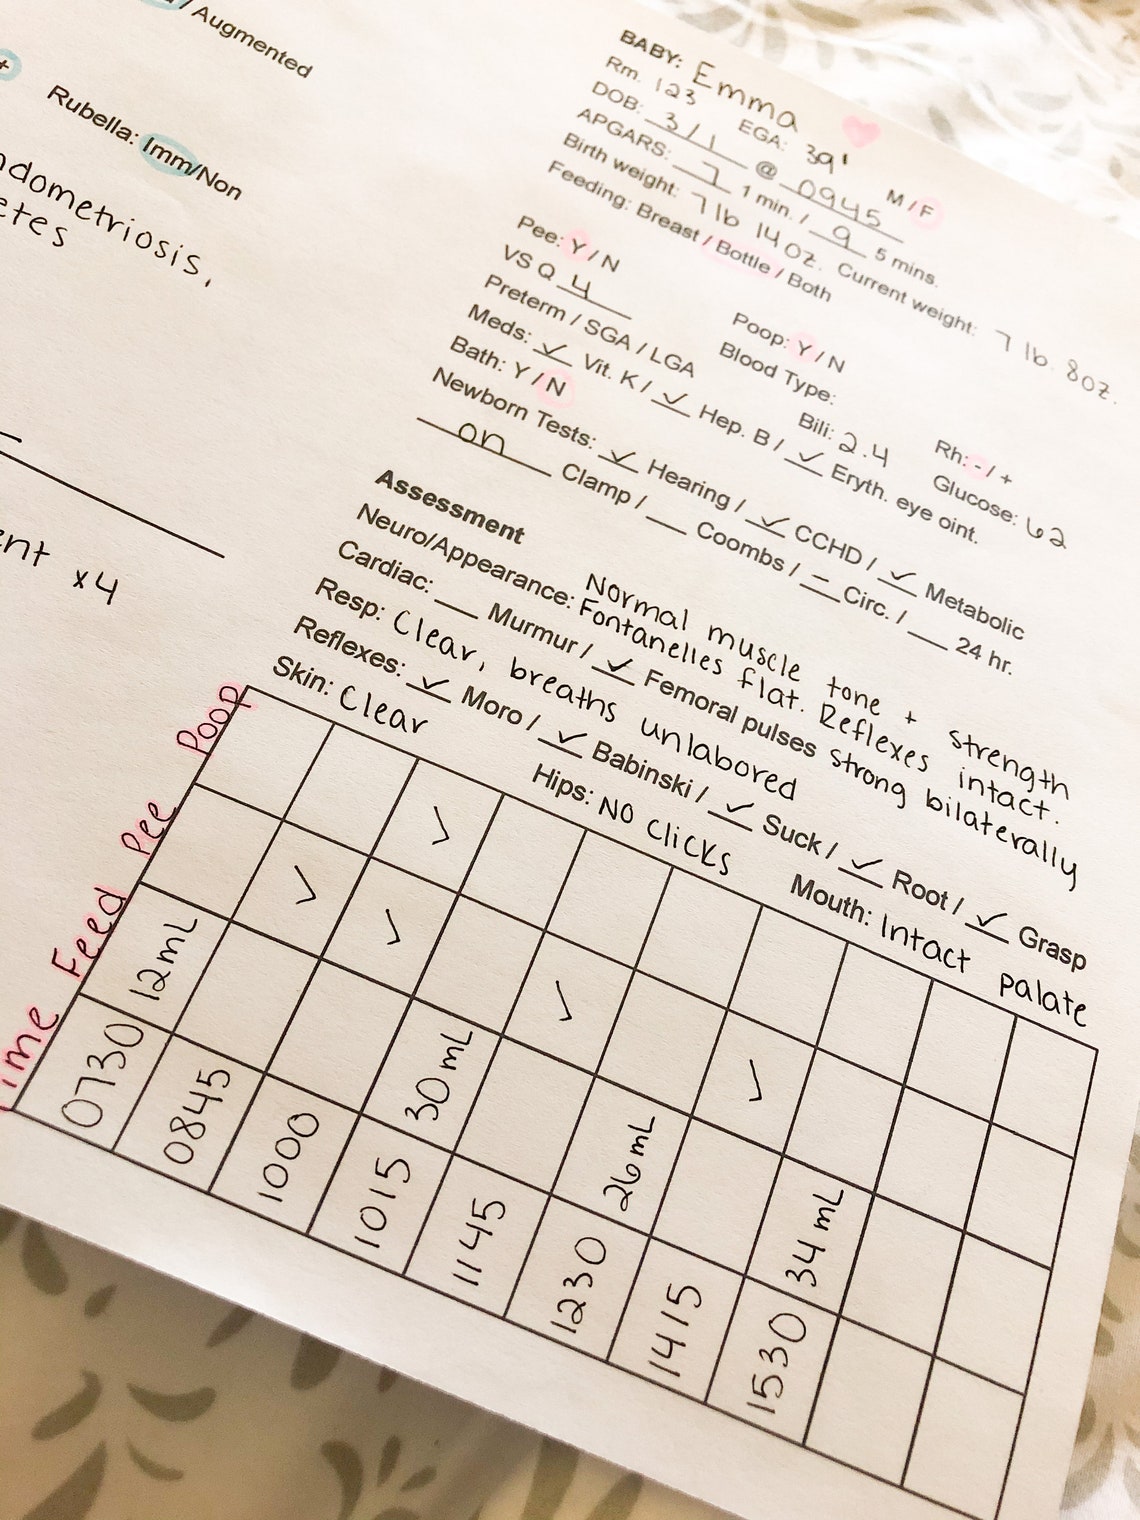 / Augmented
+
Rubella: Imm/Non
ndometriosis,
etes
ent x4
BABY: Emma
Rm. 123 EGA: 39¹ M / F
DOB: 3/1 @ 0945
APGARS: 7 1 min. / 9 5 mins.
Birth weight: 7 lb 14 oz. Current weight: 7 lb. 8oz.
Feeding: Breast / Bottle / Both
Pee: Y / N Poop: Y / N
VS Q 4 Blood Type: Rh: - / +
Preterm / SGA / LGA Bili: 2.4 Glucose: 62
Meds: ✓ Vit. K / ✓ Hep. B / ✓ Eryth. eye oint.
Bath: Y / N
Newborn Tests: ✓ Hearing / ✓ CCHD / ✓ Metabolic
on Clamp / Coombs / – Circ. / 24 hr.
Assessment
Neuro/Appearance: Normal muscle tone + strength
Fontanelles flat. Reflexes intact.
Cardiac: Murmur / ✓ Femoral pulses strong bilaterally
Resp: Clear, breaths unlabored
Reflexes: ✓ Moro / ✓ Babinski / ✓ Suck / ✓ Root / ✓ Grasp
Skin: Clear Hips: NO clicks Mouth: Intact palate
Poop ✓
Pee ✓ ✓ ✓ ✓
Feed 12mL 30 mL 26mL 34 mL
ime 0730 0845 1000 1015 1145 1230 1415 1530